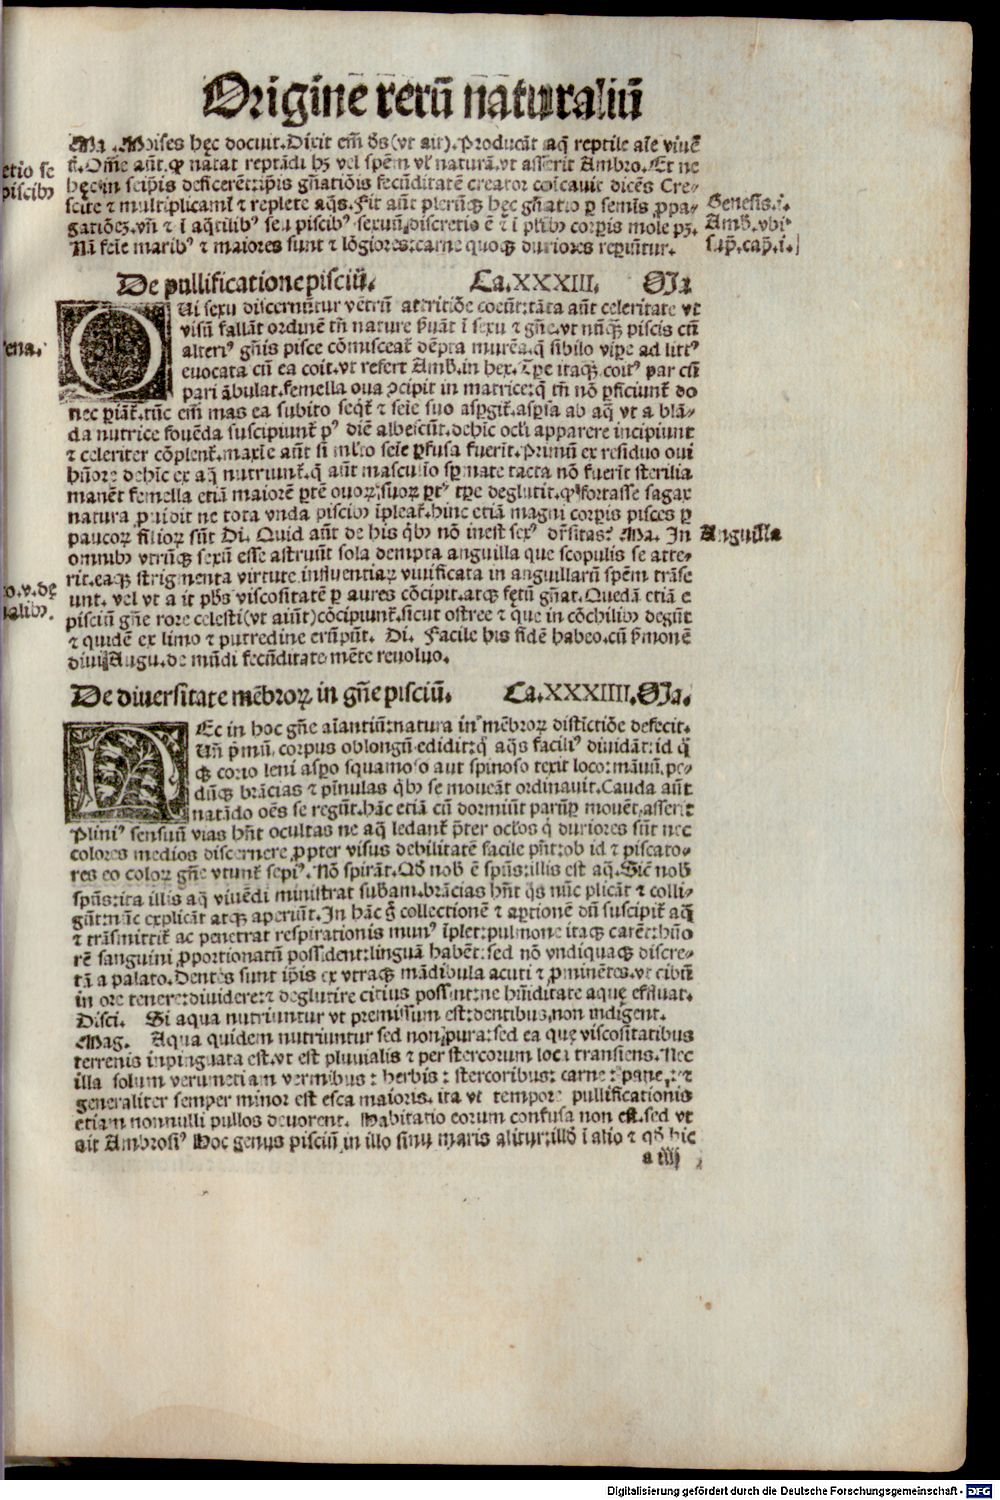 Originē rerū naturaliū
Ma. Moises hęc docuit. Dixit em̄ dn̄s (vt ait). Producāt aq̄ reptile aīe viuē
t̄. Oīne aūt. qd̓ natat reptādi hꝫ vel spēm vl̓ naturā. vt asserit Ambro. Et ne
hęc in seip̄is deficerēt: ip̄is gn̄atiōis fecūditatē creator
dicēs Cre-
scite ⁊ multiplicamī ⁊ replete aq̄s. Fit aūt plerūqꝫ hęc gn̄atio ꝑ semīs ꝓpa-
gatiōeꝫ. vn̄ ⁊ ī aq̄tilibꝰ seu piscibꝰ sexuū discretio ē ⁊ ī
corꝑis mole
Nā feīe maribꝰ ⁊ maiores sunt ⁊ lōgiores: carne quoqꝫ duriores reꝑiūtur.
etio se
piscibꝰ
Genesis. i.
Amb. vbi
sup̄. cap̄. i.
De pullificatione pisciū. Ca. XXXIII. Ma
QUi sexu discernūtur vētrū attritiōe coeūt: tāta aūt celeritate vt
visū fallāt ordinē tn̄ nature ẜuāt ī sexu ⁊ gn̄e. vt nūqꝫ piscis cū
alteriꝰ gn̄is pisce cōmisceat̄ dēpta murēa. q̄ sibilo viꝑe ad littꝰ
euocata cū ea coit. vt refert Amb. in hex. Tꝑe itaqꝫ coitꝰ par cū
pari ābulat. femella oua ꝯcipit in matrice: q̄ tn̄ nō ꝑficiunt̄ do
nec ꝑiāt̄. tūc em̄ mas ea subito seq̄t̄ ⁊ seīe suo asꝑgit̄. asꝑsa ab aq̄ vt a blā-
da nutrice fouēda suscipiunt̄ pꝰ diē albescūt. dehīc oc̄li apparere incipiunt
⁊ celeriter cōplent̄. maxīe aūt si ml̓to seīe ꝑfusa fuerīt. Primū ex residuo oui
hūore dehīc ex aq̄ nutriunt̄. q̄ aūt masculio spermate tacta nō fuerīt sterilia
manēt femella etiā maiorē ꝑtē ouoꝝ suoꝝ ꝑtꝰ tꝑe deglutit. qd̓ fortasse sagax
natura ꝓuidit ne tota vnda piscibꝰ īpleat̄. hinc etiā magni corꝑis pisces ꝑ
paucoꝝ filioꝝ sūt Di. Quid aūt de his q̄bꝰ nō inest sexꝰ dr̄sitas? Ma. In
omnibꝰ vtrūqꝫ sexū esse astruūt sola dempta anguilla que scopulis se atte-
rit. eaqꝫ strigmenta virtute influentiaꝝ viuificata in anguillarū spēm trāse
unt. vel vt a it pħs viscositatē ꝑ aures cōcipit. atqꝫ fętū gn̄at. Quedā etiā e
pisciū gn̄e rore celesti (vt aiūt) cōcipiunt̄. sicut ostree ⁊ que in cōchilibꝰ degūt
⁊ quidē ex limo ⁊ putredine erūpūt. Di. Facile his fidē habeo. cū ẜmonē
diui Augu. de mūdi fecūditate mēte reuoluo.
ena.
Anguilla
o. v. dę
ialibꝰ.
De diuersitate mēbroꝝ in gn̄e pisciū. Ca. XXXIIII. Ma.
NEc in hoc gn̄e aīantiū: natura in mēbroꝝ distīctiōe defecit.
Un̄ pͥmū corpus oblongū edidit: qd̓ aq̄s faciliꝰ diuidāt: id q̄
qꝫ corio leni aspo squamoso aut spinoso texit loco: manuū, pe-
dūqꝫ brācias ⁊ pīnulas q̄bꝰ se moueāt ordinauit. Cauda aūt
natādo oēs se regūt. hāc etiā cū dormiūt parūꝑ mouēt. asserit
Pliniꝰ sensuū vias hn̄t ocultas ne aq̄ ledant̄ p̄ter oc̄los q̄ duriores sūt nec
colores medios discernere ꝓpter visus debilitatē facile pn̄t: ob id ⁊ piscato-
res eo coloꝝ gn̄e vtunt̄ sepiꝰ. Nō spirāt. Qd̓ nob̓ ē spūs: illis est aq̄. Sic̄ nob̓
spūs: ita illis aq̄ viuēdi ministrat sub̄am. brācias hn̄t q̄s nūc plicāt ⁊ colli-
gūt: nūc explicāt atqꝫ aperiūt. In hāc g̊ collectionē ⁊ aꝑtionē dū suscipit̄ aq̄
⁊ trāsmittit̄ ac penetrat respirationis munꝰ īplet: pulmone itaqꝫ carēt: hūo
rē sanguini ꝓportionatū possident: linguā habēt: sed nō vndiquaqꝫ discre-
tā a palato. Dentes sunt ip̄is ex vtraqꝫ mādibula acuti ⁊ ꝓminētes. vt cibū
in ore tenere: diuidere: ⁊ deglutire citius possint: ne hūiditate aquę effluat.
Disci. Si aqua nutriuntur vt premissum est: dentibus, non indigent.
Mag. Aqua quidem nutriuntur sed non pura: sed ea quę viscositatibus
terrenis inpinguata est. vt est pluuialis ⁊ per stercorum loca transiens. Nec
illa solum verumetiam vermibus: herbis: stercoribus: carne: pane,: ⁊
generaliter semper minor est esca maioris. ita vt tempore pullificationis
etiam nonnulli pullos deuorent. Habitatio eorum confusa non est. sed vt
ait Ambrosiꝰ Hoc genus pisciū in illo sinu maris alitur: illd̓ ī alio ⁊ qd̓ hic
a iiij
Digitalisierung gefördert durch die Deutsche Forschungsgemeinschaft - DFG